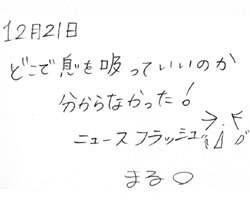 12月21日
どこで息を吸っていいのか
分からなかった!
ニュースフラッシュ
まる○